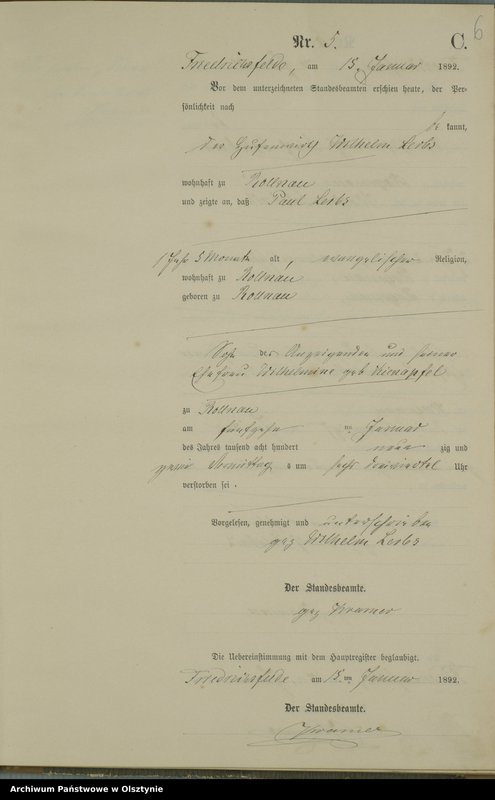 6
Nr. 5. C.
Friedrichsfelde, am 15. Januar 1892.
Vor dem unterzeichneten Standesbeamten erschien heute, der Per-
sönlichkeit nach
be kannt,
der Hufenwirth Wilhelm Leibs
wohnhaft zu Rollnau
und zeigte an, daß Paul Leibs
1 Jahr 5 Monate alt, evangelischer Religion,
wohnhaft zu Rollnau
geboren zu Rollnau
Sohn des Anzeigenden und seiner
Ehefrau Wilhelmine geb
zu Rollnau
am fünfzehn ten Januar
des Jahres tausend acht hundert neun zig und
zwei Vormittag s um sechs dreiviertel Uhr
verstorben sei.
Vorgelesen, genehmigt und unterschrieben
gez Wilhelm Leibs
Der Standesbeamte.
gez Kramer
Die Uebereinstimmung mit dem Hauptregister beglaubigt.
Friedrichsfelde am 15. ten Januar 1892.
Der Standesbeamte.
Kramer
Archiwum Państwowe w Olsztynie